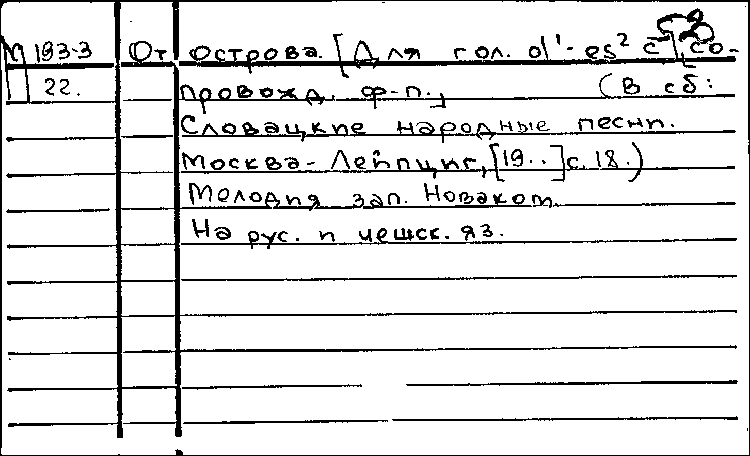 М 193-3 От острова. [Для гол. d¹-es² с со-
22. провожд. ф-п.] (В сб:
Словацкие народные песни.
Москва-Лейпциг, [19..] с. 18.)
Мелодия зап. Новаком.
На рус. и чешск. яз.